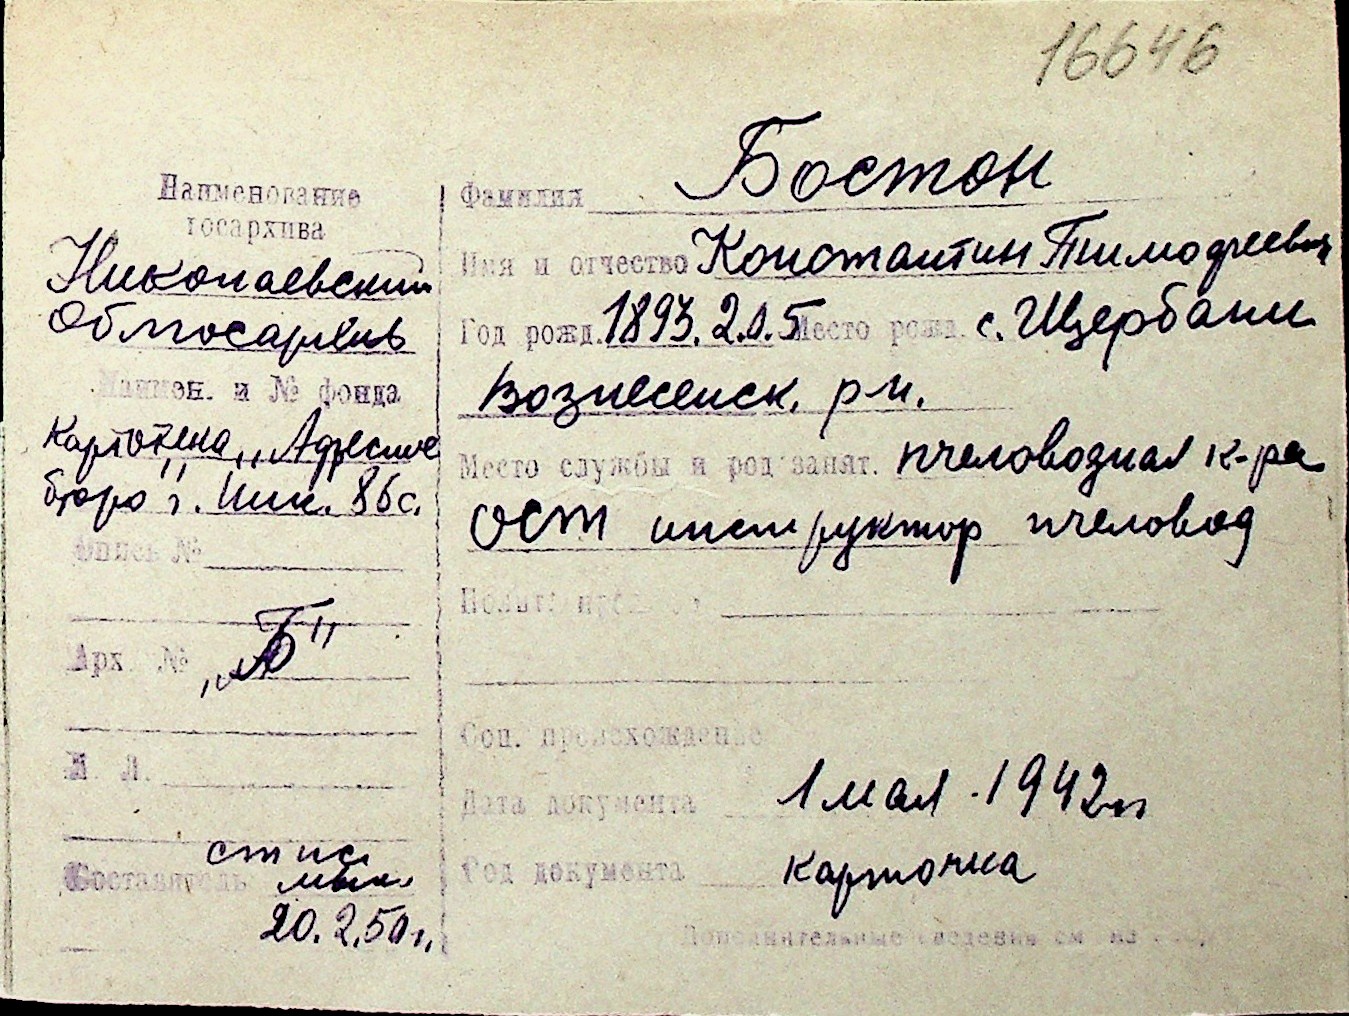 16646
Наименование
госархива
Николаевский
Облгосархив
Наимен. и № фонда
Картотека „Адресное
бюро" г. Ник. 86с.
Опись №
Арх. № „Б"
Л. Л.
Составитель
20.2.50г.
Фамилия Бостон
Имя и отчество Константин Тимофеевич
Год рожд. 1893.20.5 Место рожд. с. Щербани
Вознесенск. р-н.
Место службы и род занят. пчеловодная к-ра
ОСТ инструктор пчеловод
Соц. происхождение
Дата документа 1 мая 1942 г.
Род документа карточка
Дополнительные сведения см. на